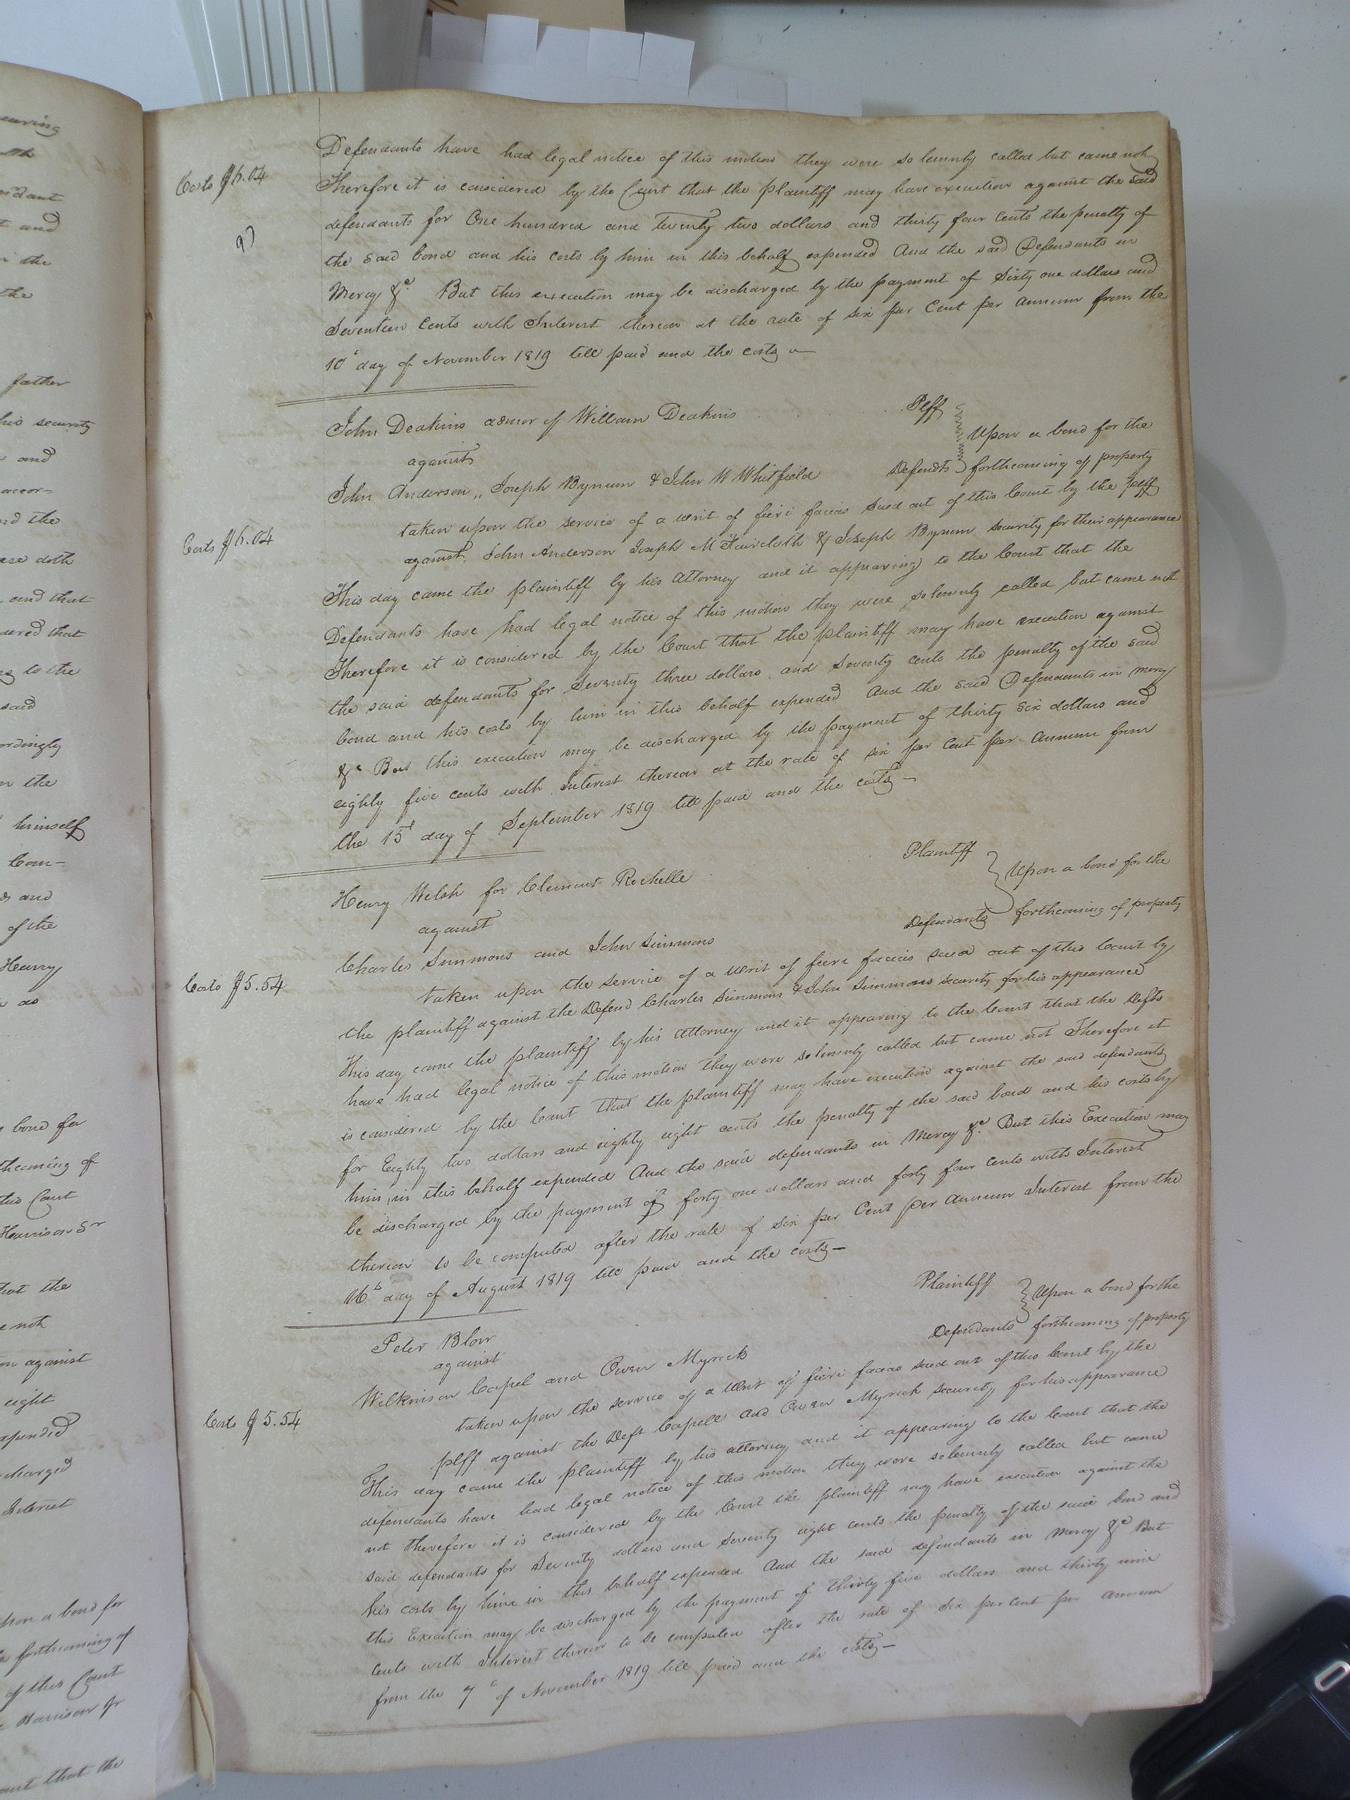 Defendants have had legal notice of this motion they were solemnly called but came not
Costs $6.04
Therefore it is considered by the Court that the plaintiff may have execution against the said
defendants for One hundred and twenty two dollars and thirty four Cents the penalty of
the said bond and his costs by him in this behalf expended And the said Defendants in
Mercy &c. But this execution may be discharged by the payment of Sixty one dollars and
Seventeen Cents with Interest thereon at the rate of six per Cent per annum from the
10th day of November 1819 till paid and the costs
John Deakins admor of William Deakins Plff
against Upon a bond for the
John Anderson, Joseph Bynum & John W Whitfield Defendts forthcoming of property
taken upon the service of a writ of fieri facias sued out of this Court by the plff
Costs $6.04
against John Anderson Joseph McFaircloth & Joseph Bynum security for their appearance
This day came the plaintiff by his Attorney and it appearing to the Court that the
Defendants have had legal notice of this motion they were solemnly called but came not
Therefore it is considered by the Court that the plaintiff may have execution against
the said defendants for Seventy three dollars and Seventy cents the penalty of the said
bond and his costs by him in this behalf expended And the said Defendants in mercy
&c But this execution may be discharged by the payment of thirty six dollars and
eighty five cents with Interest thereon at the rate of six per Cent per annum from
the 15th day of September 1819 till paid and the costs
Henry Welsh for Clement Rochelle Plaintiff
against Upon a bond for the
Charles Simmons and John Simmons Defendants forthcoming of property
Costs $5.54
taken upon the service of a writ of fieri facias sued out of this Court by
the plaintiff against the Defend Charles Simmons & John Simmons security for his appearance
This day came the plaintiff by his Attorney and it appearing to the Court that the Defts
have had legal notice of this motion they were solemnly called but came not Therefore it
is considered by the Court that the plaintiff may have execution against the said defendants
for Eighty two dollars and eighty eight cents the penalty of the said bond and his costs by
him in this behalf expended And the said defendants in Mercy &c. But this Execution may
be discharged by the payment of forty one dollars and forty four Cents with Interest
thereon to be computed after the rate of six per Cent per annum Interest from the
16th day of August 1819 till paid and the costs
Peter Blow Plaintiff
against Upon a bond for the
Wilkinson Capel and Owen Myrick Defendants forthcoming of property
Costs $5.54
taken upon the service of a writ of fieri facias sued out of this Court by the
plff against the Deft Capell and Owen Myrick security for his appearance
This day came the plaintiff by his attorney and it appearing to the Court that the
defendants have had legal notice of this motion they were solemnly called but came
not therefore it is considered by the Court the plaintiff may have execution against the
said defendants for Seventy dollars and Seventy eight cents the penalty of the said bond and
his costs by him in this behalf expended And the said defendants in Mercy &c But
this Execution may be discharged by the payment of thirty five dollars and thirty nine
cents with Interest thereon to be computed after the rate of six per cent per annum
from the 7th of November 1819 till paid and the costs